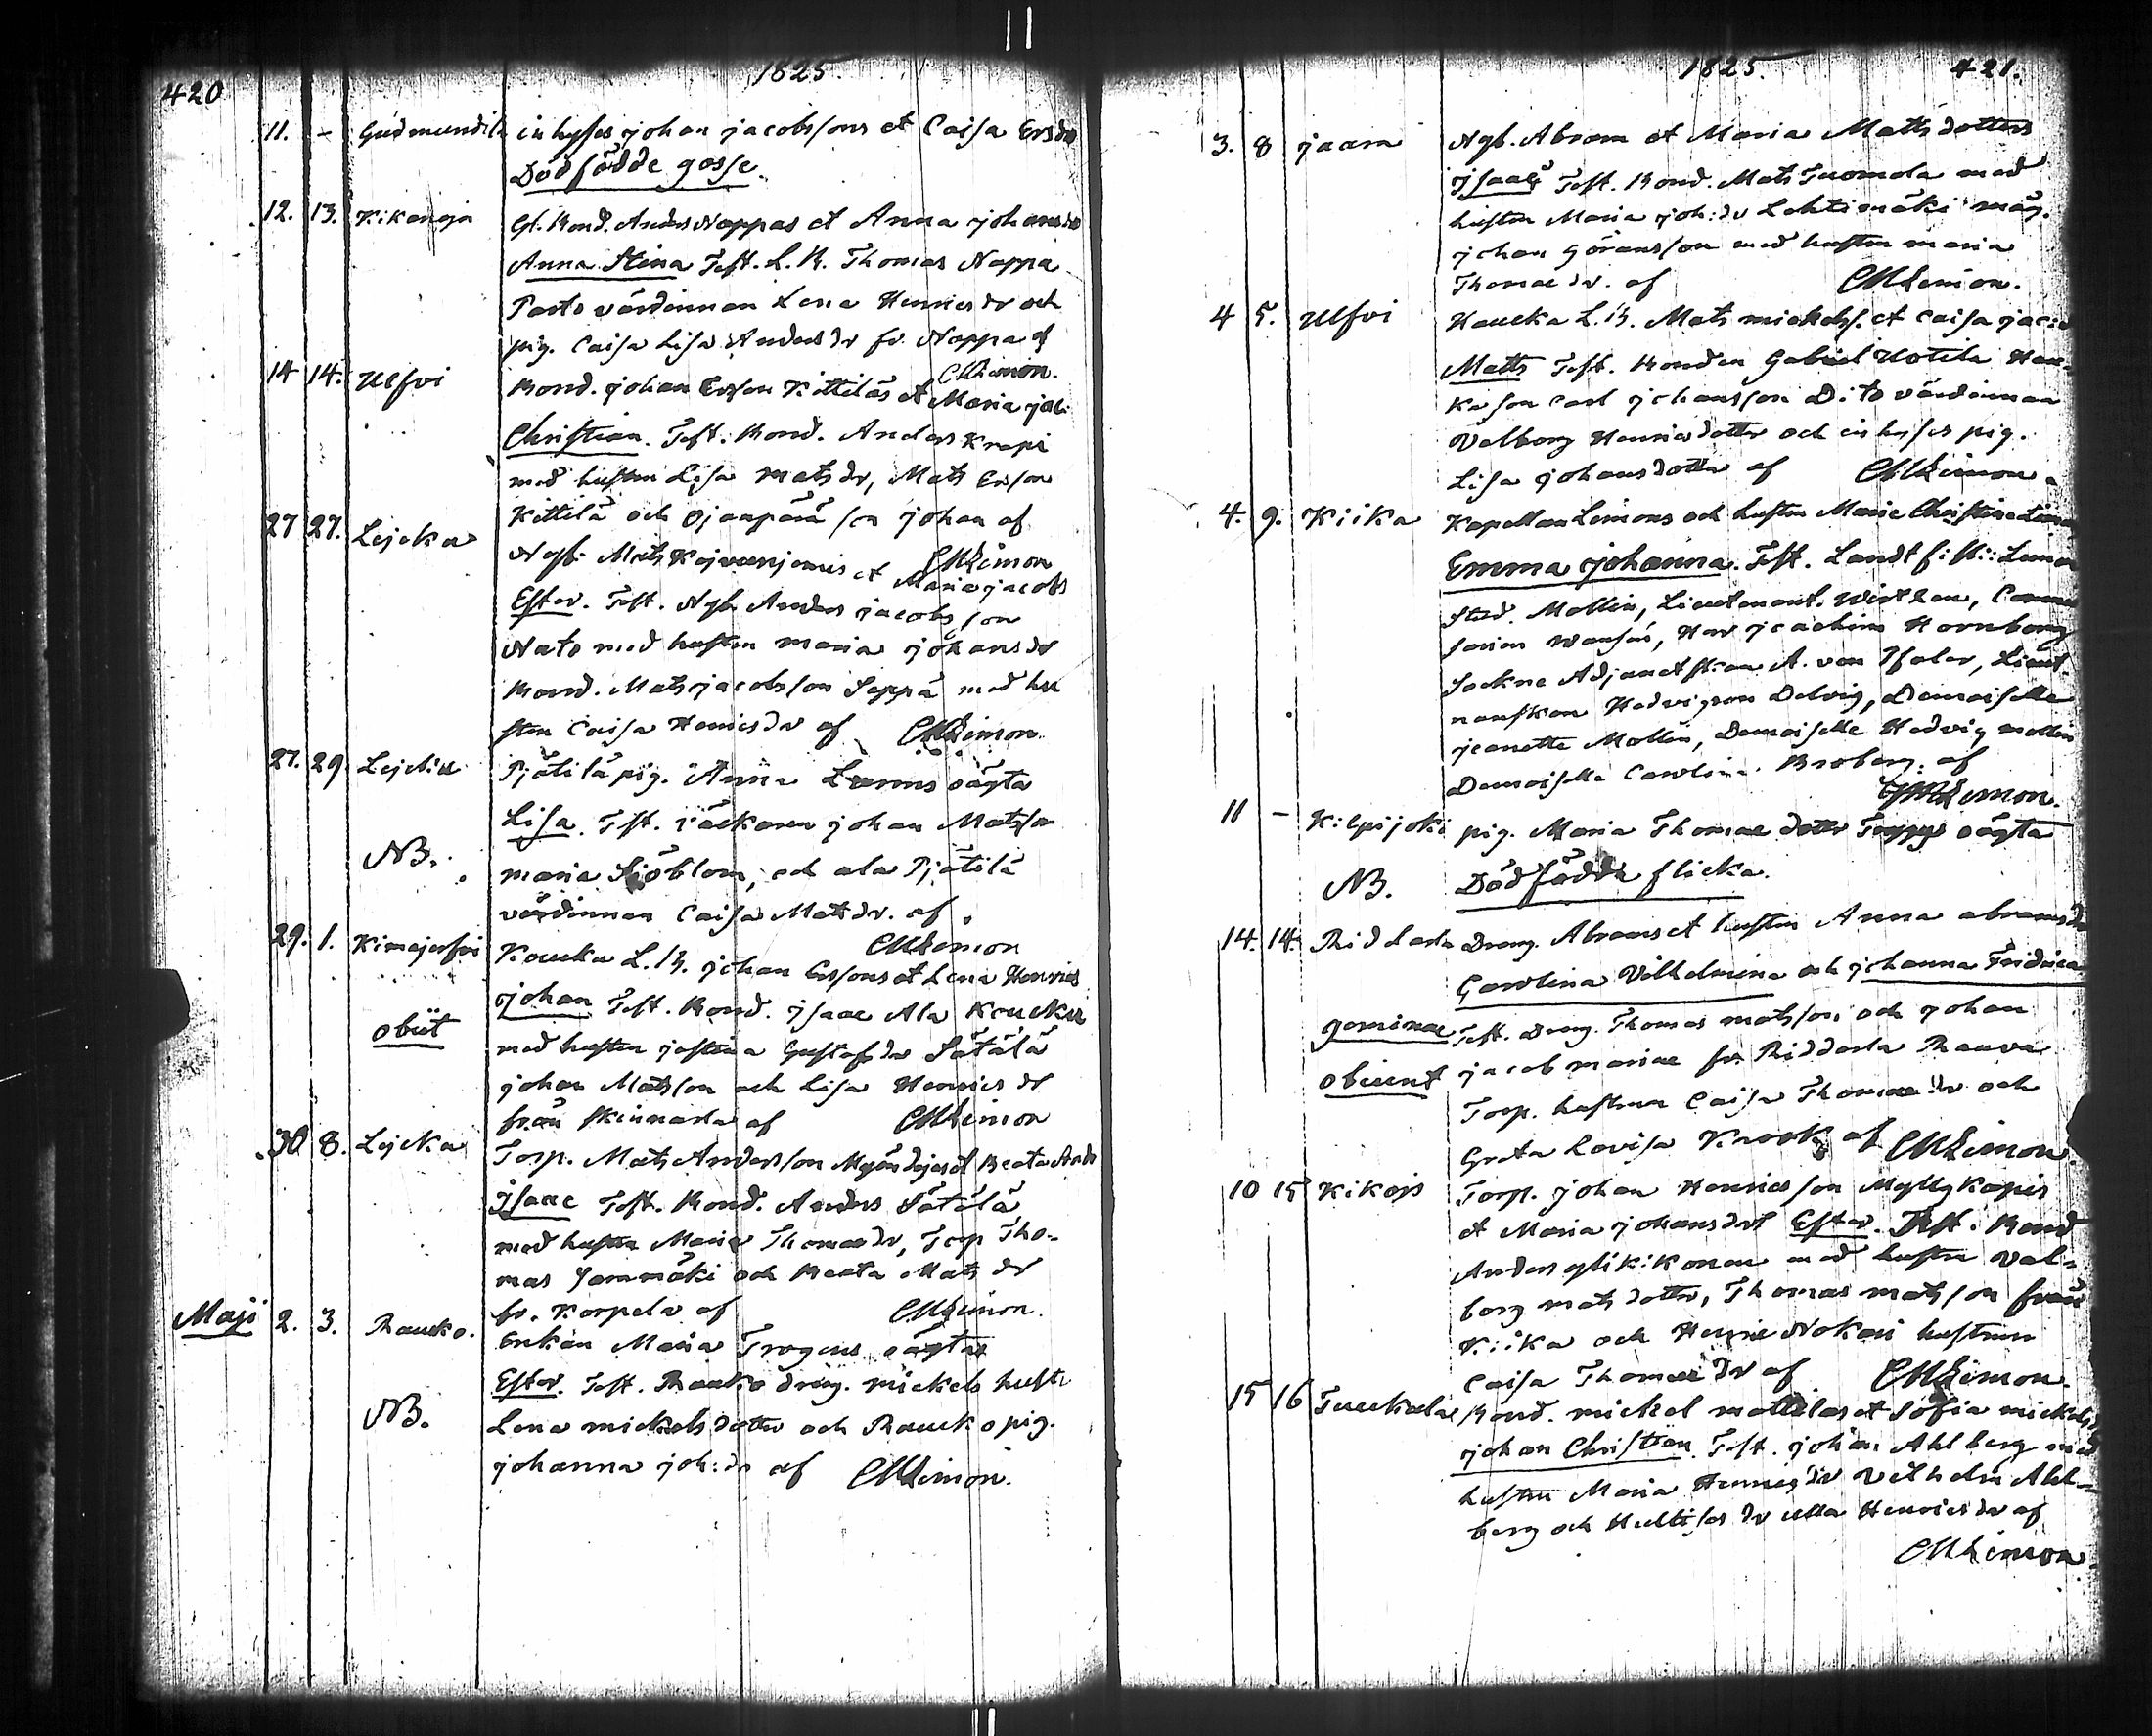 420
1825
11. - Gudmundila inhyses johan jacobssons et Caisa Ersdr
Dödfödde gosse.
12. 13. Kikanoja Gl. Bond. Anders Noppas et Anna johansdr
Anna Stina Test. L. B. Thomas Noppa
Parts värdinnan Lena Henricsdr och
pig. Caisa Lisa Andersdr fr. Noppa af
CMLimon.
14 14. Ulfvi Bond. johan Ersson Kittiläs et Maria jac:
Christian. Test. Bond. Anders Krapi
med hustru Lisa Matsdr, Mats Erson
Kittilä och Ojanperä son johan af
CMLimon
27 27. Lejcka Nyb. Mats Kojvunjemis et Maria jacobs
Ester. Test. Nyb Anders jacobsson
Nato med hustru maria johansdr
Bond. Mats jacobsson Seppä med hu
stru Caisa Henricsdr af CMLimon.
27. 29. Lejcka Pjätilä pig. Anna Lenas oägta
NB. Lisa. Test. räckaren johan Matsson
maria Sjöblom, och ala Pjätilä
värdinnan Caisa Mattsdr. af.
CMLimon
29. 1. Kimejerfvi Koucku L. B. johan Erssons et Lena Henrics
johan Test. Bond. jsaac Ala Koucku
obiit med hustru justina Gustafsdr Sätälä
johan Matsson och Lisa Henrics dr
från Skinnarla af CMLimon
30 8. Lejcka Torp. Mats Andersson Myöndejas et Beata Ands
jsaac Test. Bond. Anders Sätälä
med hustru Maria Thomædr, Torp Tho-
mas Jammäki och Beata Mats dr
fr. Korpela af CMLimon.
Maji 2. 3. Raucko. Enkan Maria Trogens oägta
Ester. Test. Raucko dreng. mickels hustr
NB. Lena mickelsdotter och Raucko pig.
johanna joh:dr af CMLimon.
1825. 421.
3. 8 jaara Nyb. Abram et Maria Mattsdotters
jsaac Test. Bond. Mats Tuomola med
hustru Maria joh:dr Lehtimäki måg.
johan Göransson med hustru maria
Thomæ dr. af CMLimon.
4 5. Ulfvi Haucka L. B. Mats mickelss. et Caisa jac:dr
Matts Test. Bonden Gabriel Uotila Hau-
ka son Carl johansson Dito värdinnan
Valborg Henricsdotter och inhyses pig.
Lisa johansdotter af CMLimon.
4. 9. Kiika Kapellan Limons och hustru Maria Christina Limon
Emma johanna. Test. Landt f: Limon
Stud. Mollin, Lieutenant. Wirzen, Comm
Herr joachim Hornborg
Sockne Adjunctskan A. von Pfaler, Lieut-
nanskan Hedvig von Delvig, Demoiselle
jeanette Mollin, Demoiselle Hedvig mollin
Demoiselle Carolina. Broberg. af
CMLimon.
11 - Kilpijoki pig. Maria Thomæ dotter oägta
NB. Dödfödda flicka.
14. 14. Riddarla Dreng. Abrams et hustru Anna abramsdr
Carolina Vilhelmina och johanna Fridrica
geminae Test. Dreng. Thomas matsson och johan
obierunt jacob mariae fr. Riddarla Rauva
Torp. hustrun Caisa Thomae dr och
Greta Lovisa Krook af CMLimon.
10 15 Kikojs Torp. johan Henricsson Myllykojis
et Maria johansdr Ester. Test. Bond
Anders ylikikonen med hustru Val-
borg mats dotter, Thomas matsson från
Kiika och Henric Nokari hustrun
Caisa Thomæ dr af CMLimon.
15 16 Tuuckala Bond. mickel mattilas et Sofia mickelsd
johan Christian. Test. johan Ahlberg med
hustru Maria Henricsdr Vilhelm Ahl-
berg och ulla Henricsdr af
CMLimon.